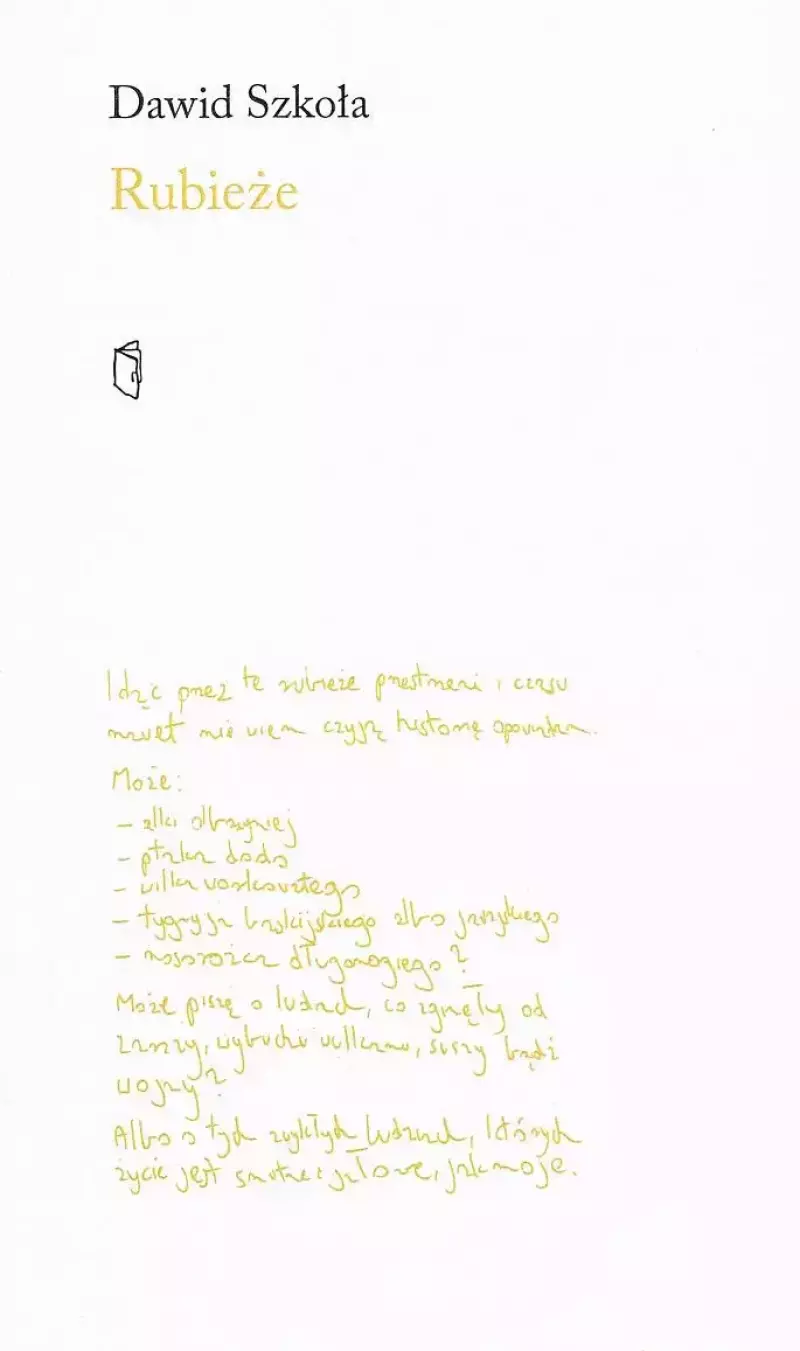 Dawid Szkoła
Rubieże
Idąc przez te rubieże przestrzeni i czasu
nawet nie wiem czyją historię opowiadam.
Może:
– alki olbrzymiej
– ptaka dodo
– wilka workowatego
– tygrysa balijskiego albo jawajskiego
– nosorożca długonogiego?
Może piszę o ludach, co zginęły od
zarazy, wybuchu wulkanu, suszy bądź
wojny?
Albo o tych zwykłych ludziach, których
życie jest smutne i jałowe, jak moje.